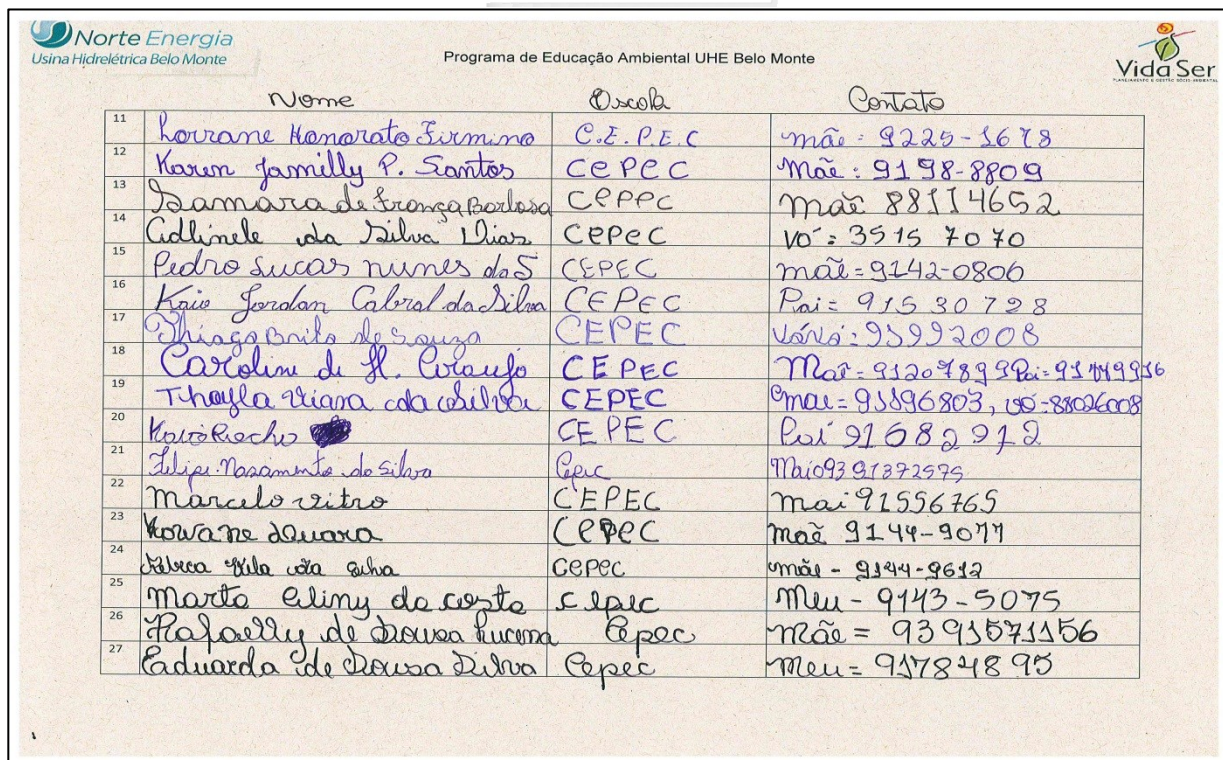 Norte Energia
Usina Hidrelétrica Belo Monte
Programa de Educação Ambiental UHE Belo Monte
Vida Ser
Nome Escola Contato
11 Lorrane Honorato Firmino C.E.P.E.C mãe: 9225-1678
12 Karen Jamilly P. Santos CEPEC Mãe: 9198-8809
13 Damara de França Barbosa CEPEC mãe 88114652
14 da Silva Dias CEPEC Vó: 3515 7070
15 Pedro Lucas nunes da S CEPEC mãe=9142-0806
16 Kaio Jordan Cabral da Silva CEPEC Pai= 91530728
17 Thiago Brito de Souza CEPEC 93992008
18 Caroline de H. Araujo CEPEC Mãe=91207899 Pai=
19 Thayla Viana da Silva CEPEC mãe=91896803, vó=88026008
20 Rocho CEPEC Pai 91682912
21 Filipe Nascimento da Silva Cepec
22 Marcelo vitro CEPEC mai 91556765
23 CEPEC mãe 9144-9077
24 da silva CEPEC mãe - 9144-9612
25 Marta Eliny da costa cepec Meu - 9143-5075
26 Rafaelly de Sousa Lucena Cepec Mãe = 9391571156
27 Eduarda de Sousa Silva Cepec Meu= 91784895